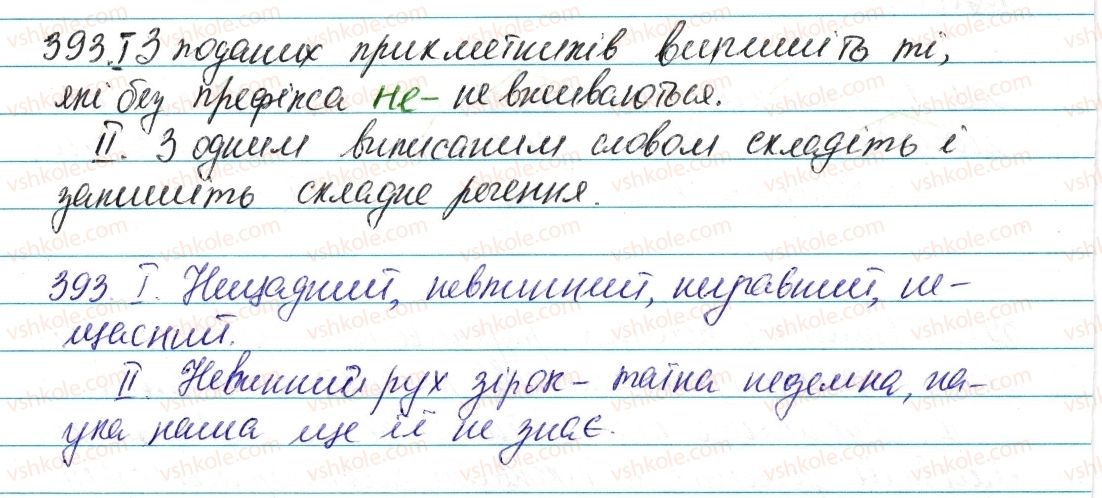 393. I З поданих прикметників випишіть ті,
які без префікса не- не вживаються.
II. З одним виписаним словом складіть і
запишіть складне речення.
393. I. Нещадний, невпинний, неправний, не-
щасний.
II. Невпинний рух зірок – таїна неземна, на-
ука наша ще її не знає.